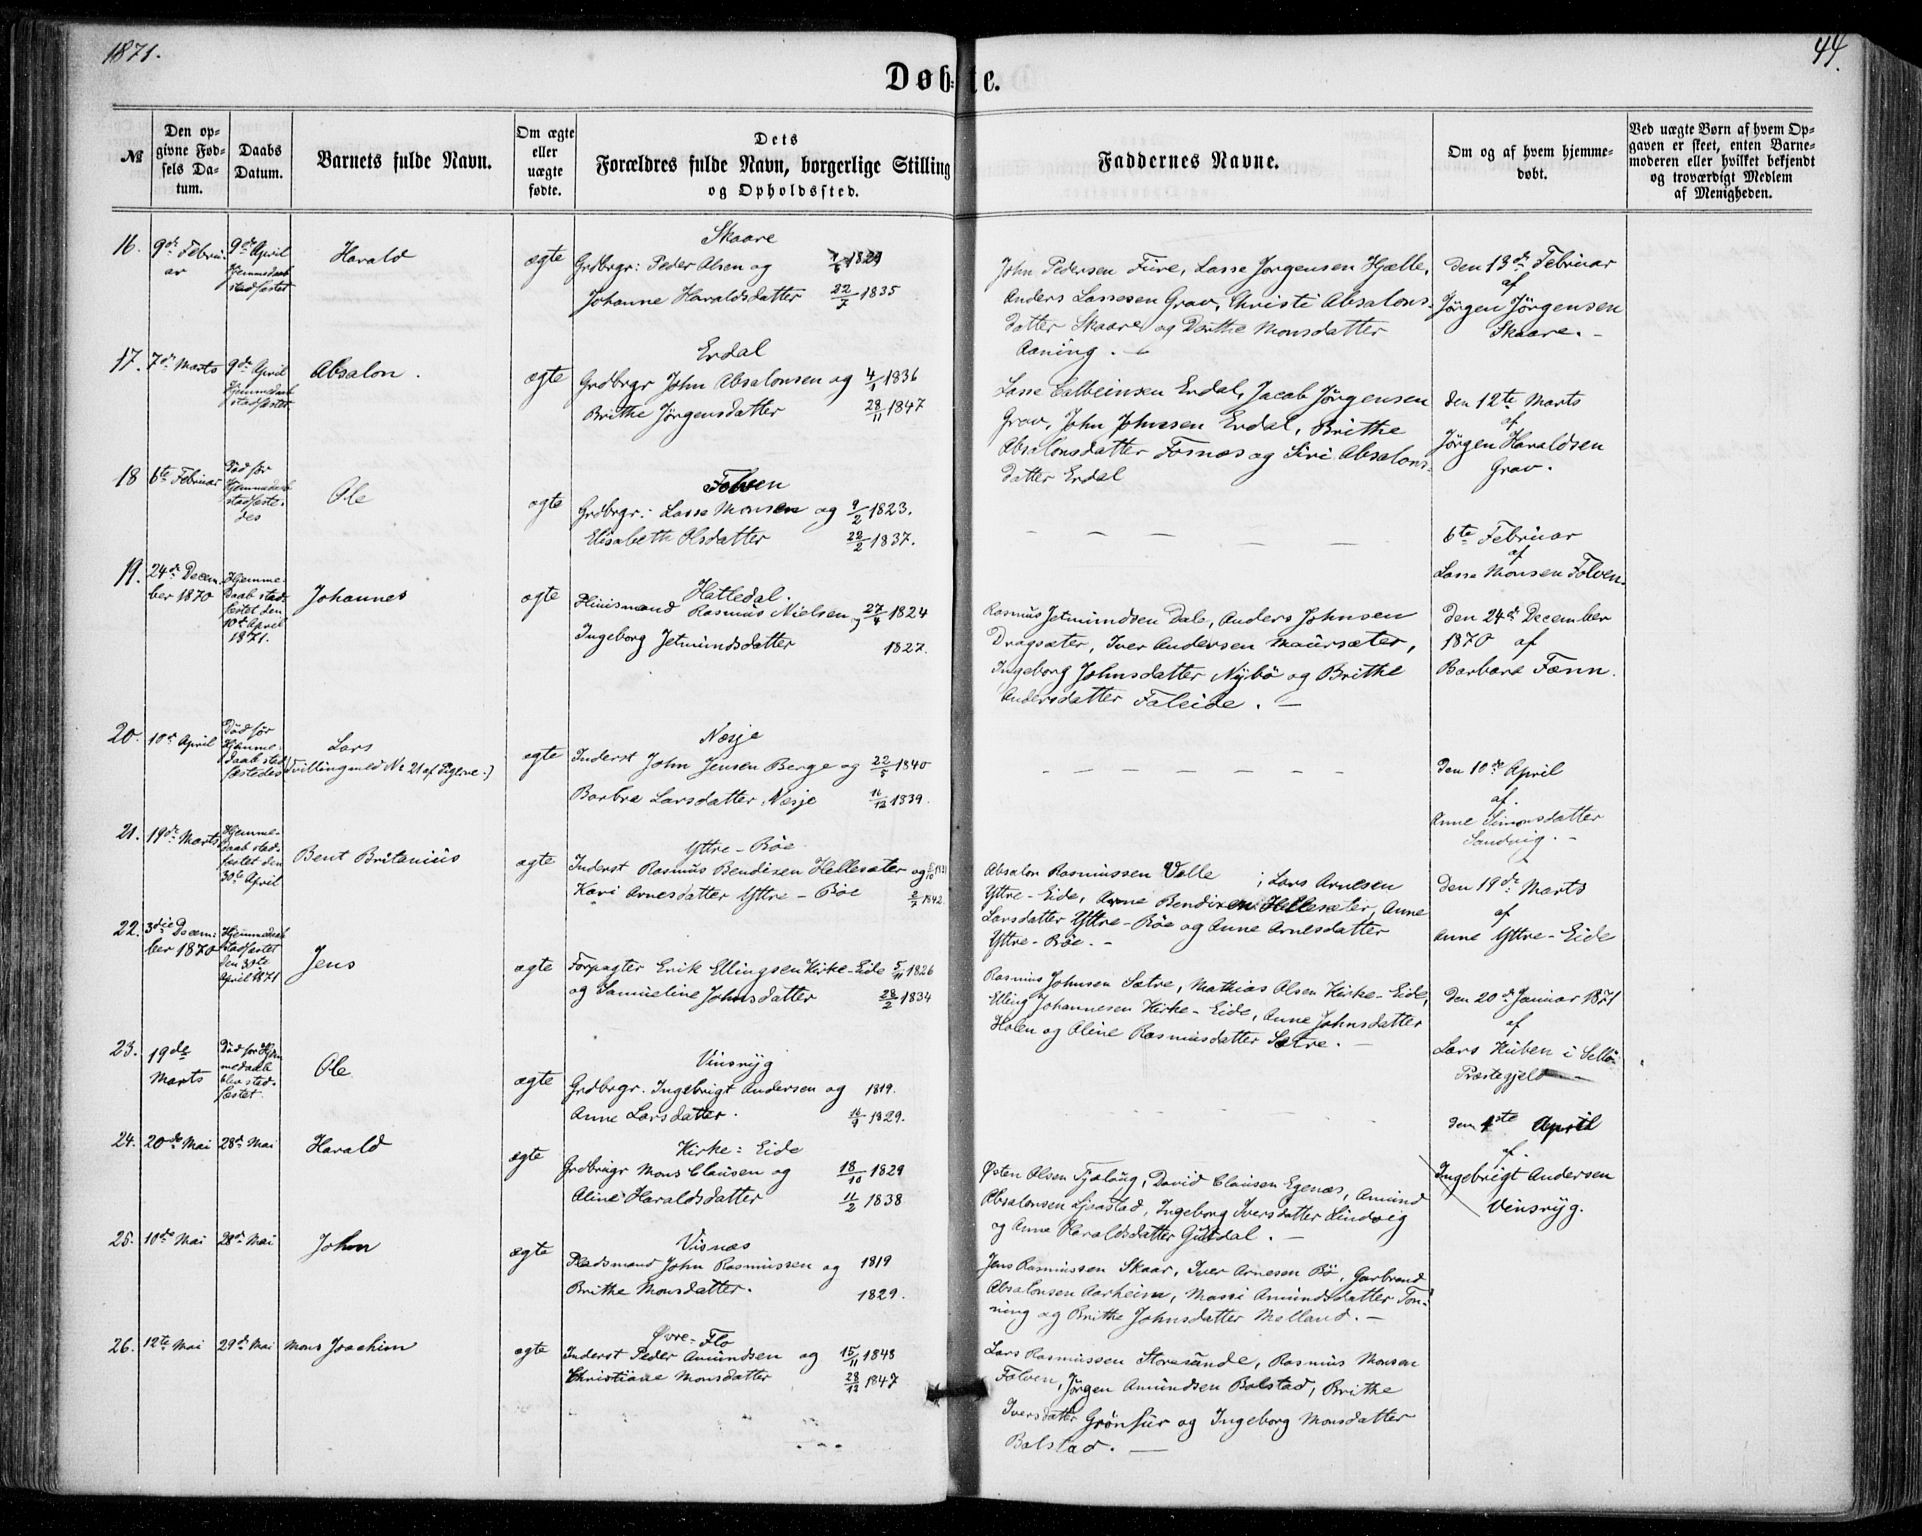 1871.
44.
Døbte.
№
Den op-
givne Fød-
sels Da-
tum.
Daabs
Datum.
Barnets fulde Navn.
Om ægte
eller
uægte
fødte.
Dets
Forældres fulde Navn, borgerlige Stilling
og Opholdssted.
Faddernes Navne.
Om og af hvem hjemme-
døbt.
Ved uægte Børn af hvem Op-
gaven er skeet, enten Barne-
moderen eller hvilket bekjendt
og troværdigt Medlem
af Menigheden.
16.
9de Febru-
ar
9de April
Hjemmedaab
stadfæstet
Harald
ægte
Skaare
Grdbrgr: Peder Olsen og
Johanne Haraldsdatter 22/7 1835
John Pedersen Fure, Lasse Jørgensen Hjelle,
Anders Lassesen Grav, Christi Absalons-
datter Skaare og Dorthe Monsdatter
Aaning. -
Den 13de Februar
af
Jørgen Jørgensen
Skaare. -
17.
7de Marts
9de April
Hjemmedaab
stadfæstet
Absalon.
ægte
Erdal
Grdbrgr John Absalonsen og 1836
Brithe Jørgensdatter 28/11 1847
Lasse Erdal, Jacob Jørgensen
Grav, John Johnsen Erdal, Brithe
Absalonsdatter Fosnæs og Siri Absalons-
datter Erdal
Den 12te Marts
af
Jørgen Haraldsen
Grav.
18
6te Februar
Død før
Hjemmedaab
stadfæste-
des
Ole
ægte
Folven
Grdbrgr: Lasse Monsen og 9/2 1823.
Elisabeth Olsdatter 22/2 1837.
- - - - - -
6te Februar
af
Lasse Monsen Folven.
19.
24de Decem-
ber 1870
Hjemme-
daab stad-
fæstet den
10de April
1871.
Johannes
ægte
Hattedal.
Huusmand Rasmus Nielsen og 27/4 1824
Ingeborg Jetmundsdatter 1827.
Rasmus Jetmundsen Dale, Anders Johnsen
Dragsæter, Iver Andersen Maursæter,
Ingeborg Johnsdatter Nybø og Brithe
Andersdatter Faleide. -
Den 24de December
1870 af
Barbara Fænn.
20.
10de April
Død før
Hjemme-
daab stad-
fæstedes
Lars
(Tvilling med № 21 af Pigerne.)
ægte
Nesje
Inderst John Jensen Berge og 22/5 1840
Barbra Larsdatter Nesje 11/12 1839.
- - - - - - -
Den 10de April
af.
Anne Simonsdatter
Sandvig. -
21.
19de Marts
Hjemme-
daab stad-
fæstet den
30te April
Bent Britanius
ægte
Yttre-Bøe
Inderst Rasmus Bendixen Hellesæter og
Kari Arnesdatter Yttre-Bøe 1842.
Absalon Rasmussen Valle, Lars Arnesen
Yttre-Eide, Arne Bendixen Hellesæter, Anne
Larsdatter Yttre-Bøe og Anne Arnesdatter
Yttre-Bøe. -
Den 19de Marts
af
Anne Yttre-Eide
22.
3die Decem-
ber 1870
Hjemmedaab
stadfæstet
den 30te
April 1871
Jens
ægte
Forpagter Erik Ellingsen Kirke-Eide 5/11 1826
og Samueline Johnsdatter 28/2 1834
Rasmus Johnsen Sætre, Mathias Olsen Kirke-Eide,
Elling Johannesen Kirke-Eide, Anne Johnsdatter
Holen og Oline Rasmusdatter Sætre. -
Den 20de Januar 1871
af
Lars Kuben i Selløe
Præstegjeld
23.
19de
Marts
Død før Hjem-
medaab
blev stad-
fæstet.
Ole
ægte
Vinsryg
Grdbrgr. Ingebrigt Andersen og 1819.
Anne Larsdatter. 1829.
Den 1ste April
af.
Ingebrigt Andersen
Vinsryg.
24.
20de Mai
28de Mai
Harald
ægte
Kirke-Eide
Grdbrugr Mons Clausen og 18/10 1829
Oline Haraldsdatter 11/2 1838
Østen Olsen Tjaloug, David Clausen Egenæs, Amund
Absalonsen Ljosstad, Ingeborg Iversdatter Lindvig
og Anne Haraldsdatter Guddal. -
25.
10de Mai
28de Mai
John
ægte
Visnæs
Pladsmand John Rasmussen og 1819
Brithe Monsdatter. 1829.
Jens Rasmussen Skaar, Iver Arnesen Bø, Garbrand
Absalonsen Aarheim, Massi Amundsdatter Ton-
ning og Brithe Johnsdatter Melland. -
26.
12te Mai
29de Mai
Mons Joachim
ægte
Øvre-Flo
Inderst Peder Amundsen og 15/11 1848
Christiane Monsdatter 28/12 1847
Lars Rasmussen Storesunde, Rasmus Monsen
Folven, Jørgen Amundsen Bolstad, Brithe
Iversdatter Grønfur og Ingeborg Monsdatter
Bolstad. -